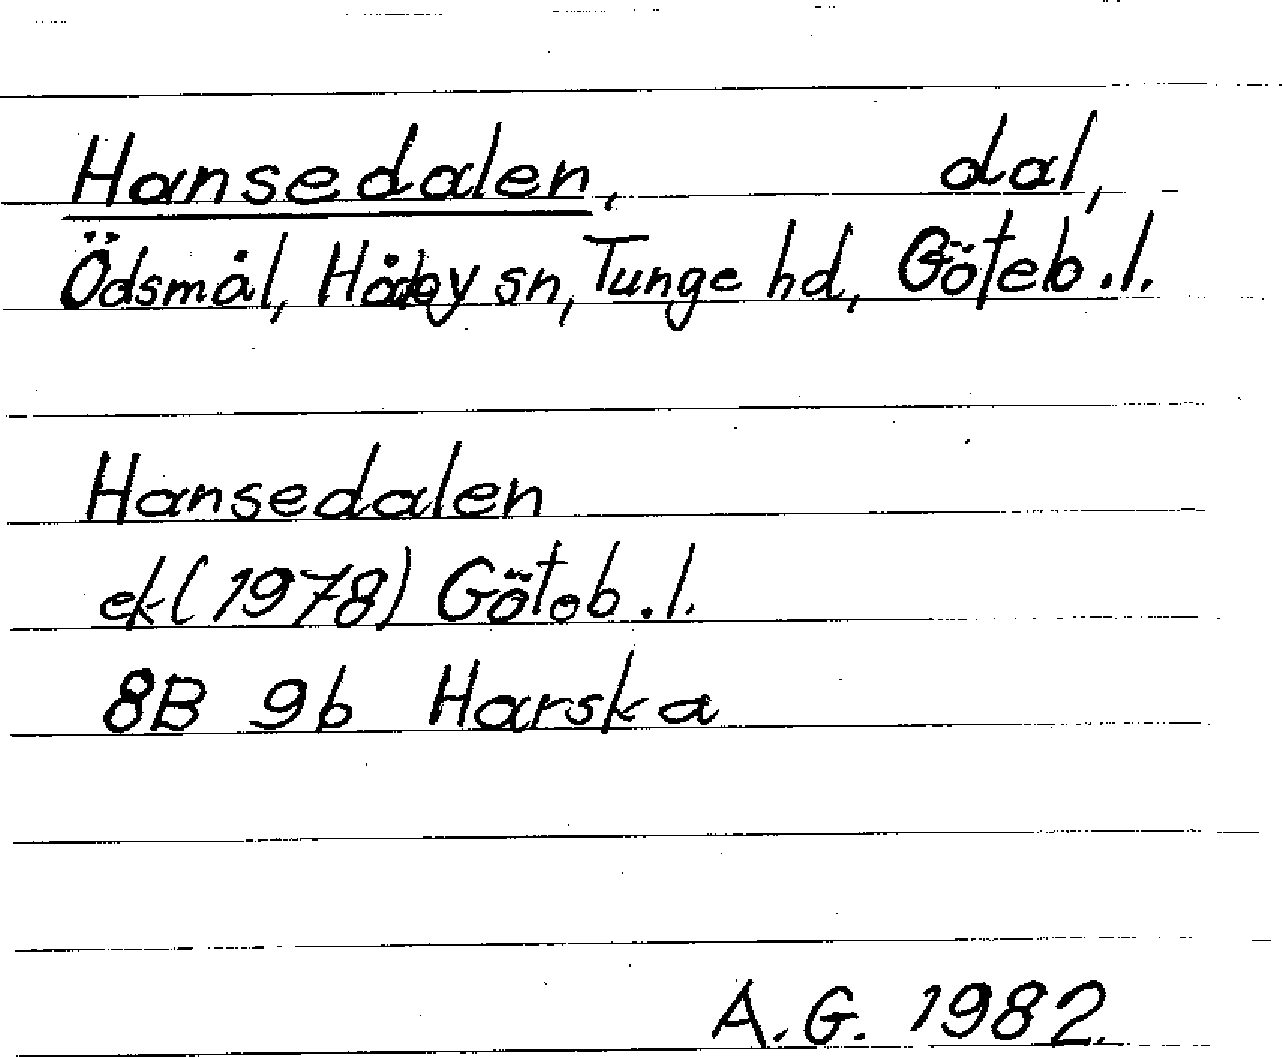 Hansedalen, dal,
Ödsmål, Håby sn, Tunge hd, Göteb.l.
Hansedalen
ek (1978) Götob.l.
8B 9b Harska
A.G. 1982.